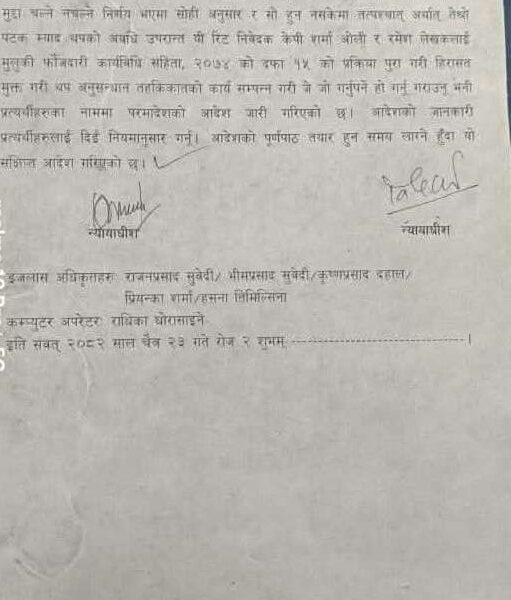 मुद्दा चल्ने नचल्ने निर्णय भएमा सोही अनुसार र सो हुन नसकेमा तत्पश्चात् अर्थात् तेश्रो
पटक म्याद थपको अवधि उपरान्त यी रिट निवेदक केपी शर्मा ओली र रमेश लेखकलाई
मुलुकी फौजदारी कार्यविधि संहिता, २०७४ को दफा १५ को प्रक्रिया पुरा गरी हिरासत
मुक्त गरी थप अनुसन्धान तहकिकातको कार्य सम्पन्न गरी जे जो गर्नुपर्ने हो गर्नु गराउनु भनी
प्रत्यर्थीहरुका नाममा परमादेशको आदेश जारी गरिएको छ। आदेशको जानकारी
प्रत्यर्थीहरुलाई दिई नियमानुसार गर्नु। आदेशको पूर्णपाठ तयार हुन समय लाग्ने हुँदा यो
संक्षिप्त आदेश गरिएको छ।
न्यायाधीश
न्यायाधीश
इजलास अधिकृतहरुः राजनप्रसाद सुवेदी/ भीमप्रसाद सुवेदी/कृष्णप्रसाद दहाल/
प्रियन्का शर्मा/हसना तिमिल्सिना
कम्प्युटर अपरेटरः राधिका घोरासाइने
इति संवत् २०८२ साल चैत्र २३ गते रोज २ शुभम् ------------------------------------।